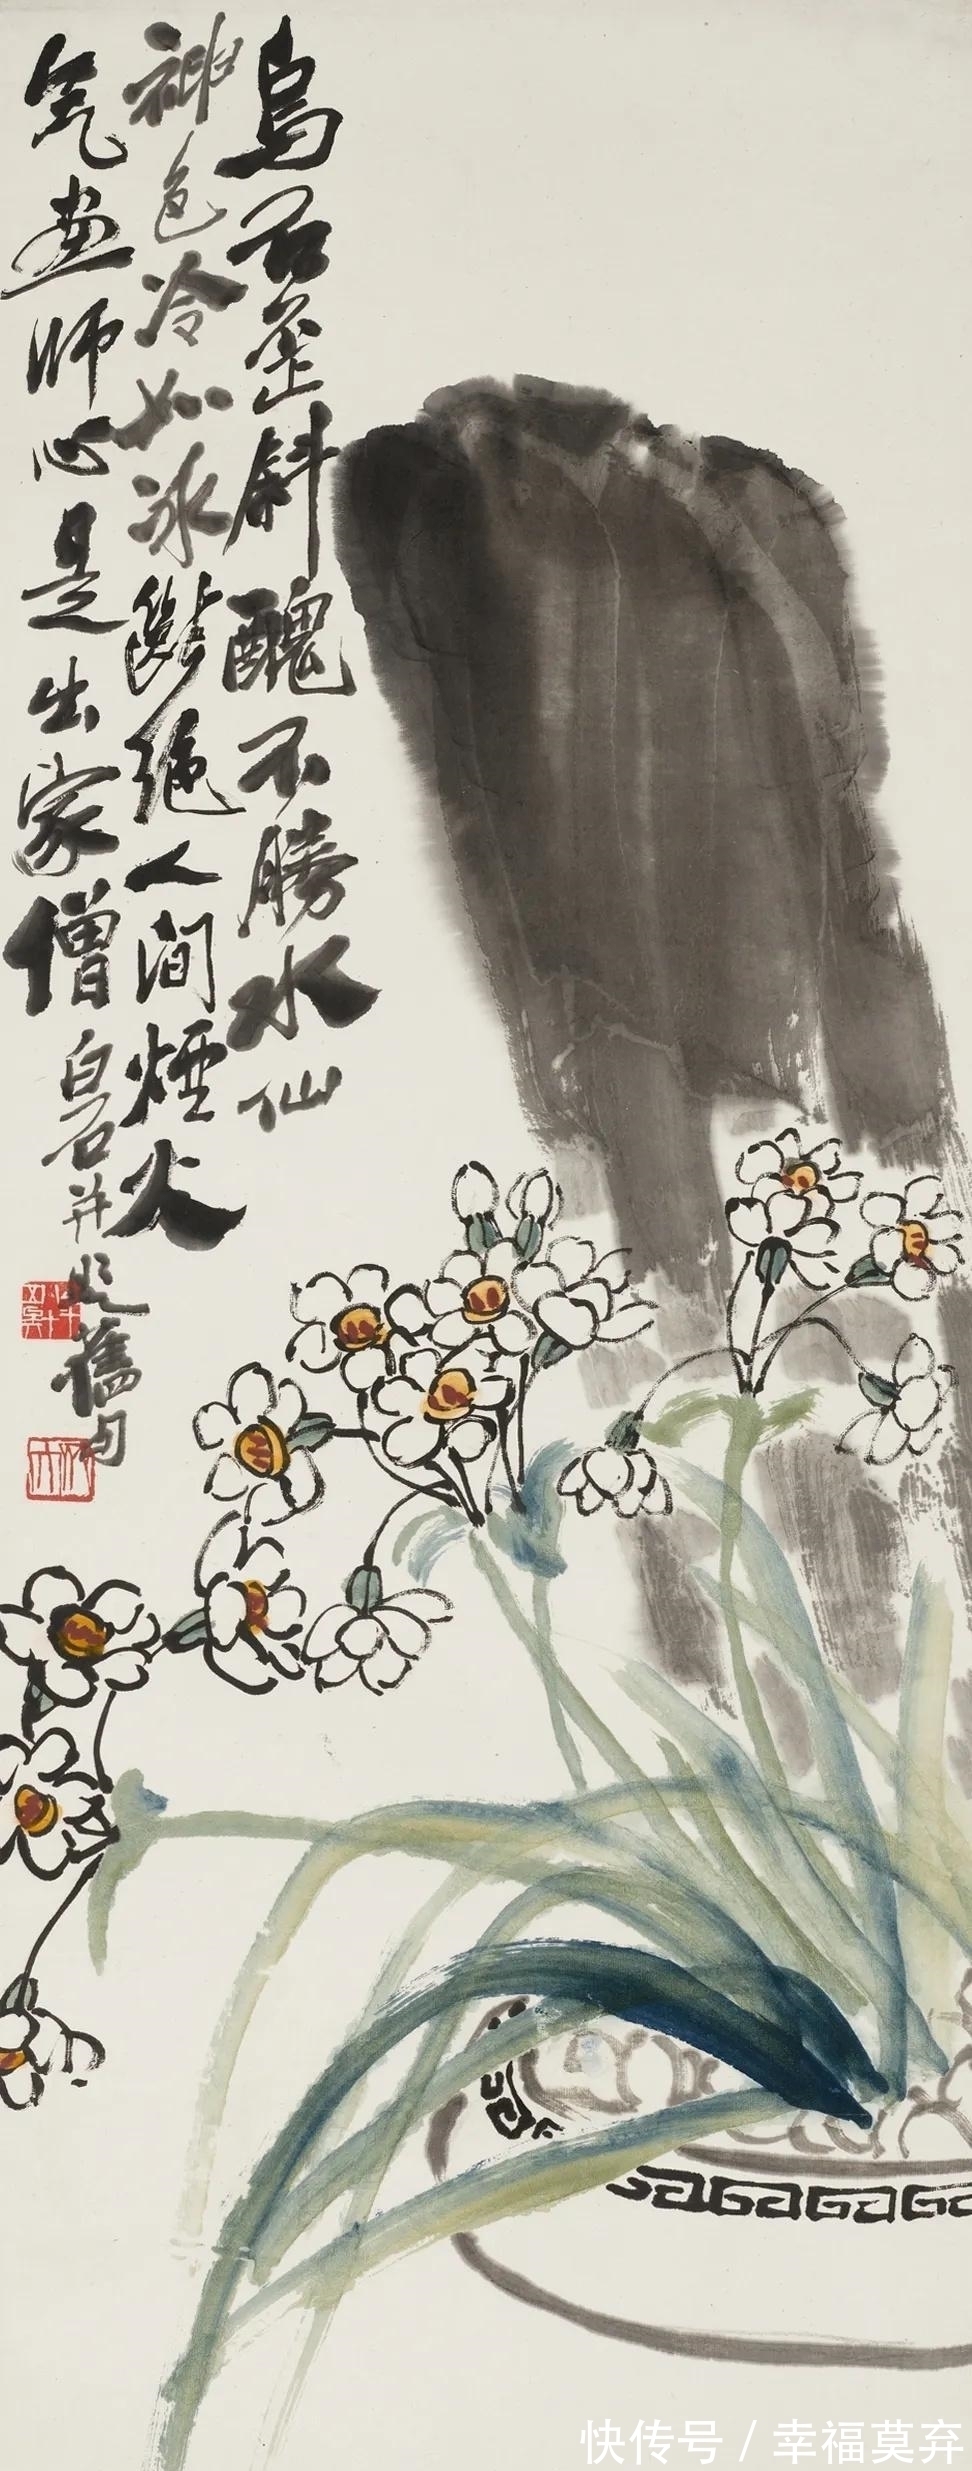 烏石歪斜醜不勝水仙
神色冷如冰斷絕人間煙火
气畫師心是出家僧
白石并題舊句
快传号 / 幸福莫弃